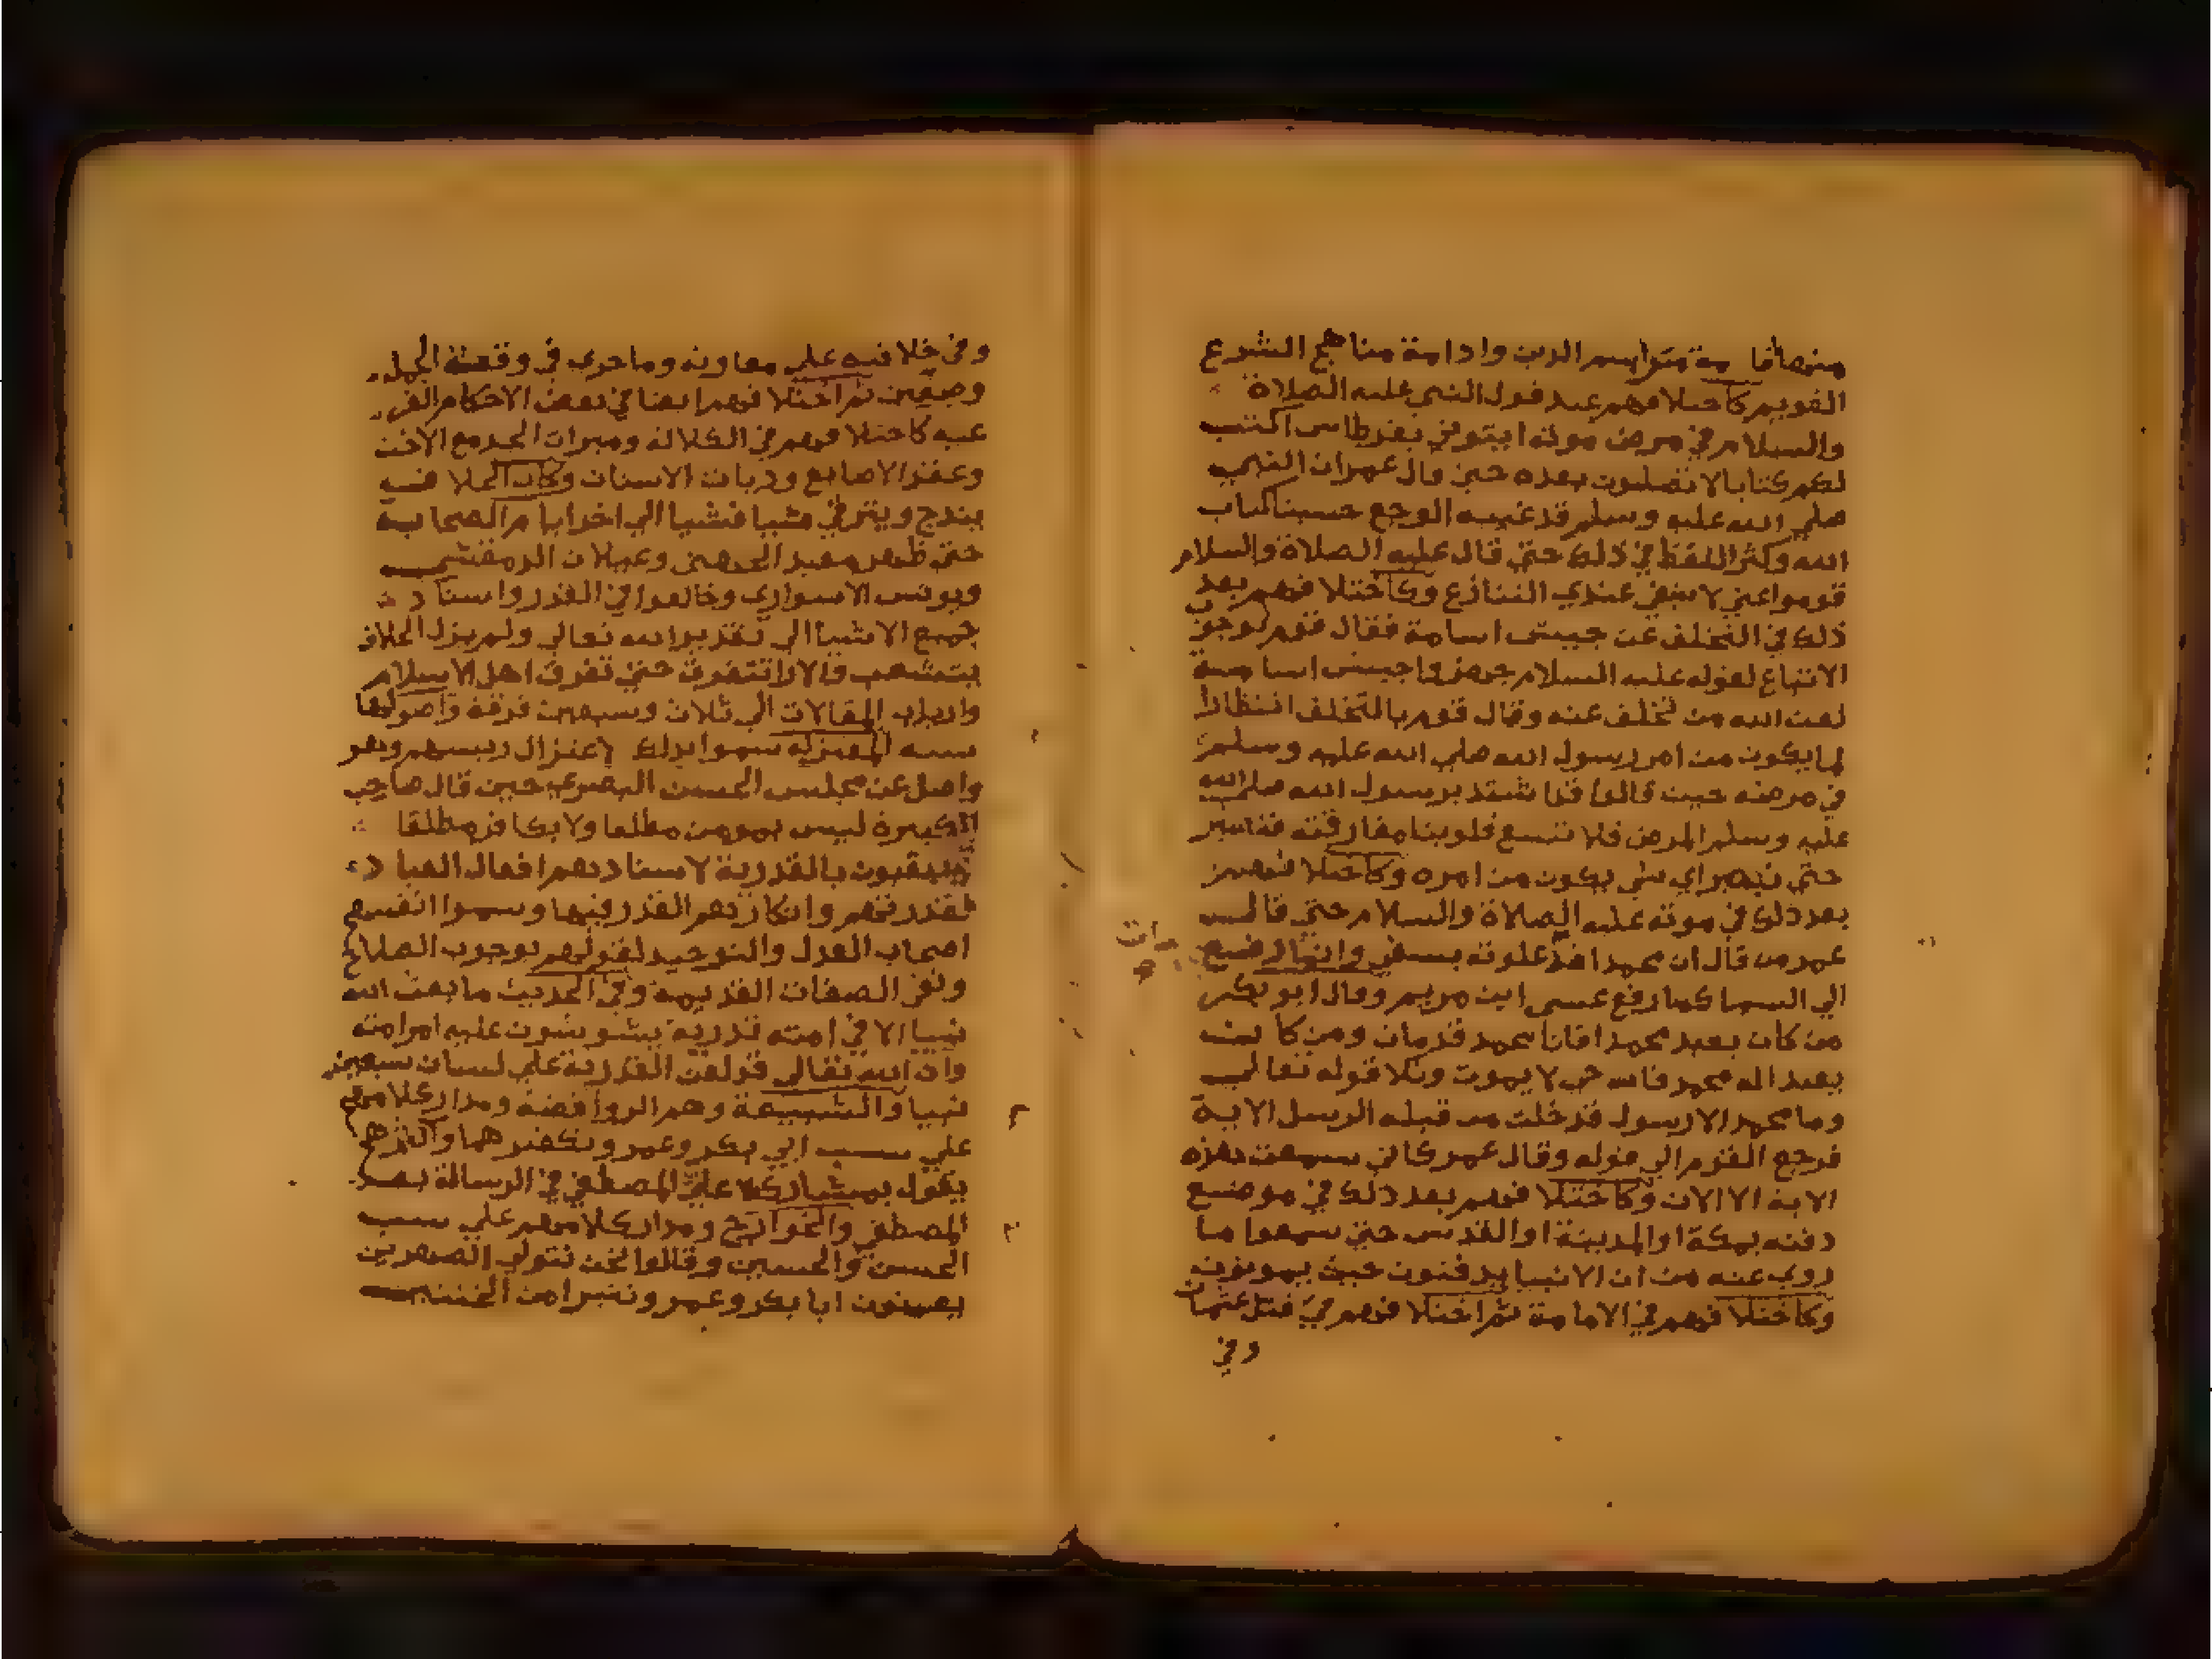 منها اقامة مراسم الدين وادامة مناهج الشرع
القويم كاختلافهم عند قول النبي عليه الصلاة
والسلام في مرض موته ايتوني بقرطاس اكتب
لكم كتابا لا تضلون بعده حين قال عمر ان النبي
صلي الله عليه وسلم قد غلبه الوجع حسبنا كتاب
الله وكثر اللغط في ذلك حتي قال عليه الصلاة والسلام
قوموا عني لا ينبغي عندي التنازع وكاختلافهم بعد
ذلك في التخلف عن جيش اسامة فقال قوم بوجوب
الاتباع لقوله عليه السلام جهزوا جيش اسامة
لعن الله من تخلف عنه وقال قوم بالتخلف انتظارا
لما يكون من امر رسول الله صلي الله عليه وسلم
في مرضه حيث قالوا قد اشتد برسول الله صلي الله
عليه وسلم المرض فلا تسع قلوبنا مفارقته فنصبر
حتي نبصر اي شي يكون من امره وكاختلافهم
بعد ذلك في موته عليه الصلاة والسلام حتي قال
عمر من قال ان محمدا قد علوته بسيفي وانما رفع
مات
الي السما كما رفع عيسي ابن مريم وقال ابو بكر
من كان يعبد محمدا فان محمد قد مات ومن كان
يعبد اله محمد فانه حي لا يموت وتلا قوله تعالي
وما محمد الا رسول قد خلت من قبله الرسل الاية
فرجع القوم الي قوله وقال عمر كاني سمعت بهذه
الاية الا الان وكاختلافهم بعد ذلك في موضع
دفنه بمكة او المدينة او القدس حتي سمعوا ما
روي عنه من ان الانبيا يدفنون حيث يموتون
وكاختلافهم في الامامة ثم اختلافهم في قتل عثمان
وفي
وفي خلافته علي معاوية وما جري في وقعة الجمل
وصفين ثم اختلافهم ايضا في بعض الاحكام الفر
عية كاختلافهم في الكلالة وميراث الجد مع الاخت
وعقر الاصابع وديات الاسنان وكان الخلاف
يندرج ويترقي شيا فشيا الي اخر ايام الصحابة
حتي ظهر معبد الجهني وغيلان الدمشقي
ويونس الاسواري وخالفوا في القدر واسناد
جميع الاشيا الي تقدير الله تعالي ولم يزل الخلاف
يتشعب والارا تتفرق حتي تفرق اهل الاسلام
وارباب المقالات الي ثلاث وسبعين فرقة واصولها
ستة المعتزلة سموا بذلك لاعتزال رييسهم وهو
واصل عن مجلس الحسن البصري حين قال صاحب
الكبيرة ليس بمومن مطلقا ولا بكافر مطلقا
ويلقبون بالقدرية لاسنادهم افعال العباد
لقدرتهم وانكارهم القدر فيها وسموا انفسهم
اصحاب العدل والتوحيد لقولهم بوجوب الصلاح
ونفي الصفات القديمة وفي الحديث ما بعث الله
نبيا الا في امته قدرية يشوشون عليه امر امته
وان الله تعالي قد لعن القدرية علي لسان سبعين
نبيا والشيعة وهم الروافضة ومدار كلامهم
علي سب ابي بكر وعمر وتكفيرهما واكثرهم
يقول بمشاركة علي المصطفي في الرسالة بعد
المصطفي والخوارج ومدار كلامهم علي سب
الحسن والحسين وقالوا نحن نتولي الصهرين
يعنون ابا بكر وعمر ونتبرا من الختنين